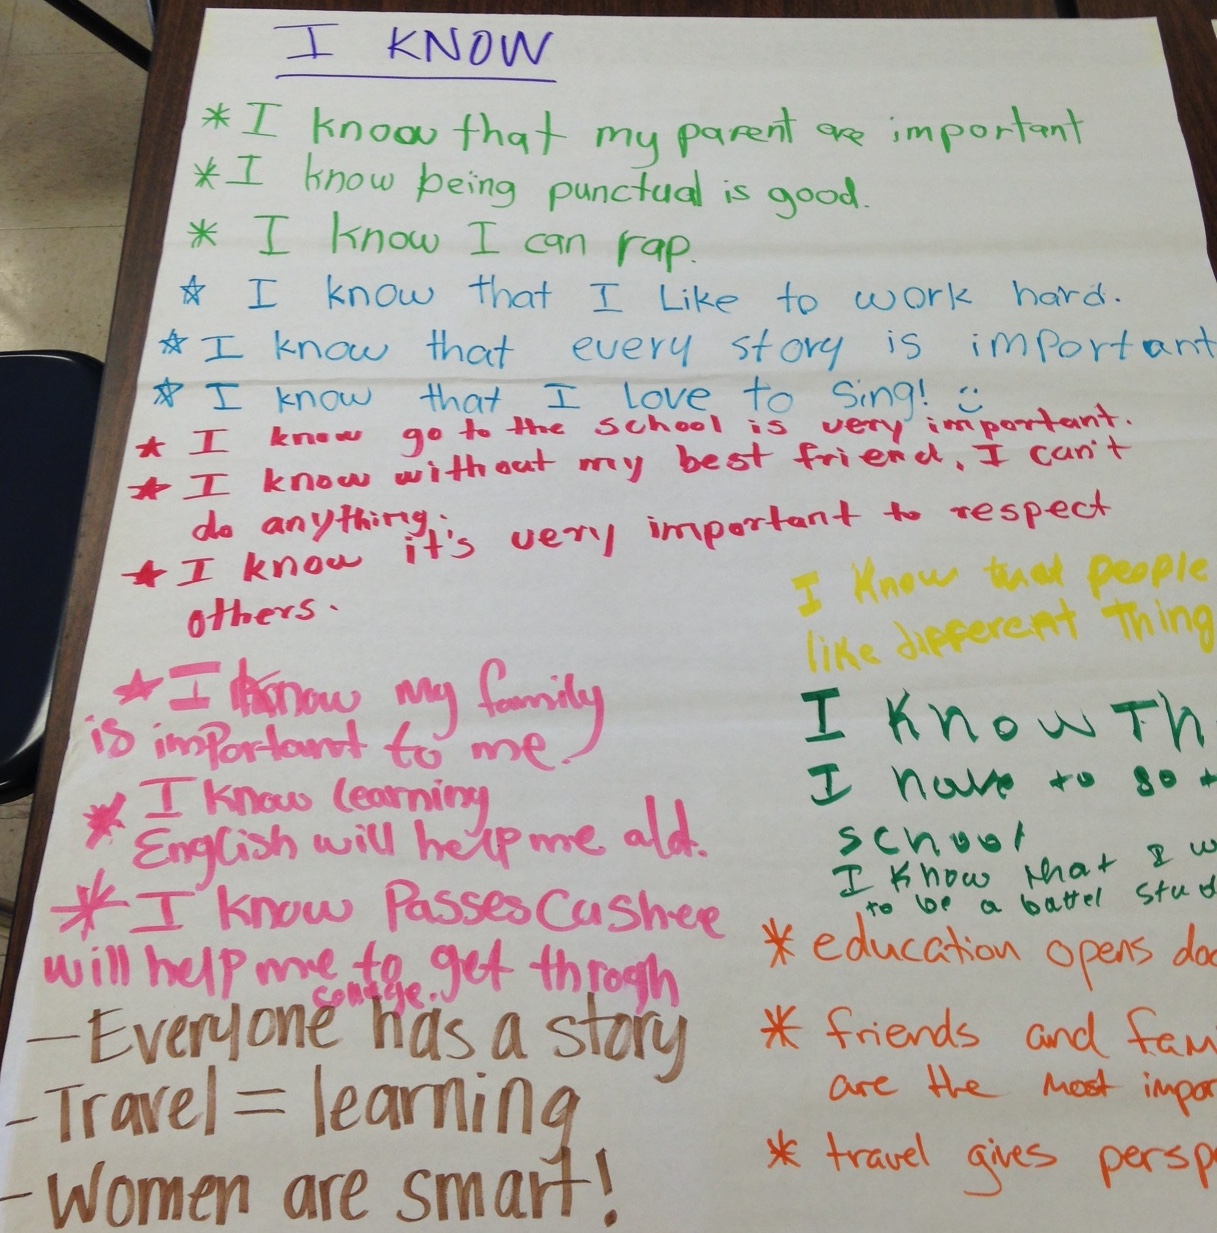 I KNOW
* I know that my parent are important
* I know being punctual is good.
* I know I can rap.
☆ I know that I Like to work hard.
☆ I know that every story is important
☆ I know that I love to sing! :)
★ I know go to the school is very important.
★ I know without my best friend, I can't
do anything.
★ I know it's very important to respect
others.
I Know that people
like different Thing
★ I know my family
is important to me.
* I know learning
English will help me alot.
* I know Passes
will help me to get throgh
college.
I Know Th
I have to go t
school
I Know that I w
to be a battel stud
- Everyone has a story
- Travel = learning
- Women are smart!
* education opens doo
* friends and fam
are the most impor
* travel gives persp